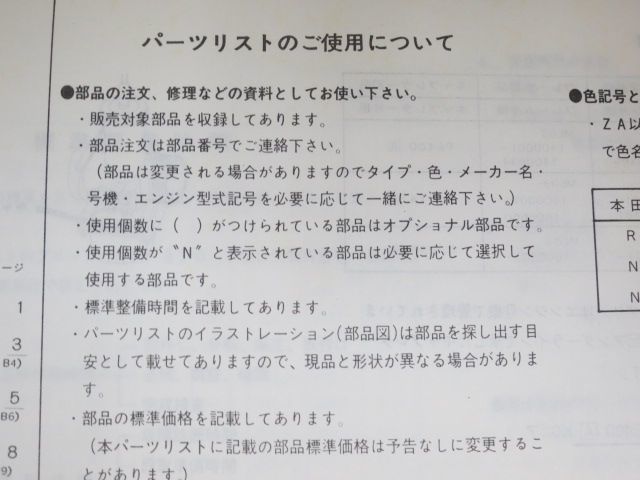 パーツリストのご使用について
●部品の注文、修理などの資料としてお使い下さい。
・販売対象部品を収録してあります。
・部品注文は部品番号でご連絡下さい。
（部品は変更される場合がありますのでタイプ・色・メーカー名・
号機・エンジン型式記号を必要に応じて一緒にご連絡下さい。）
・使用個数に（　）がつけられている部品はオプショナル部品です。
・使用個数が〝N〟と表示されている部品は必要に応じて選択して
使用する部品です。
・標準整備時間を記載してあります。
・パーツリストのイラストレーション（部品図）は部品を探し出す目
安として載せてありますので、現品と形状が異なる場合がありま
す。
・部品の標準価格を記載してあります。
（本パーツリストに記載の部品標準価格は予告なしに変更するこ
とがあります。）
●色記号と
・ZA以
で色名
本田
R
N
N
ージ
1
3
B4)
5
B6)
8
9)